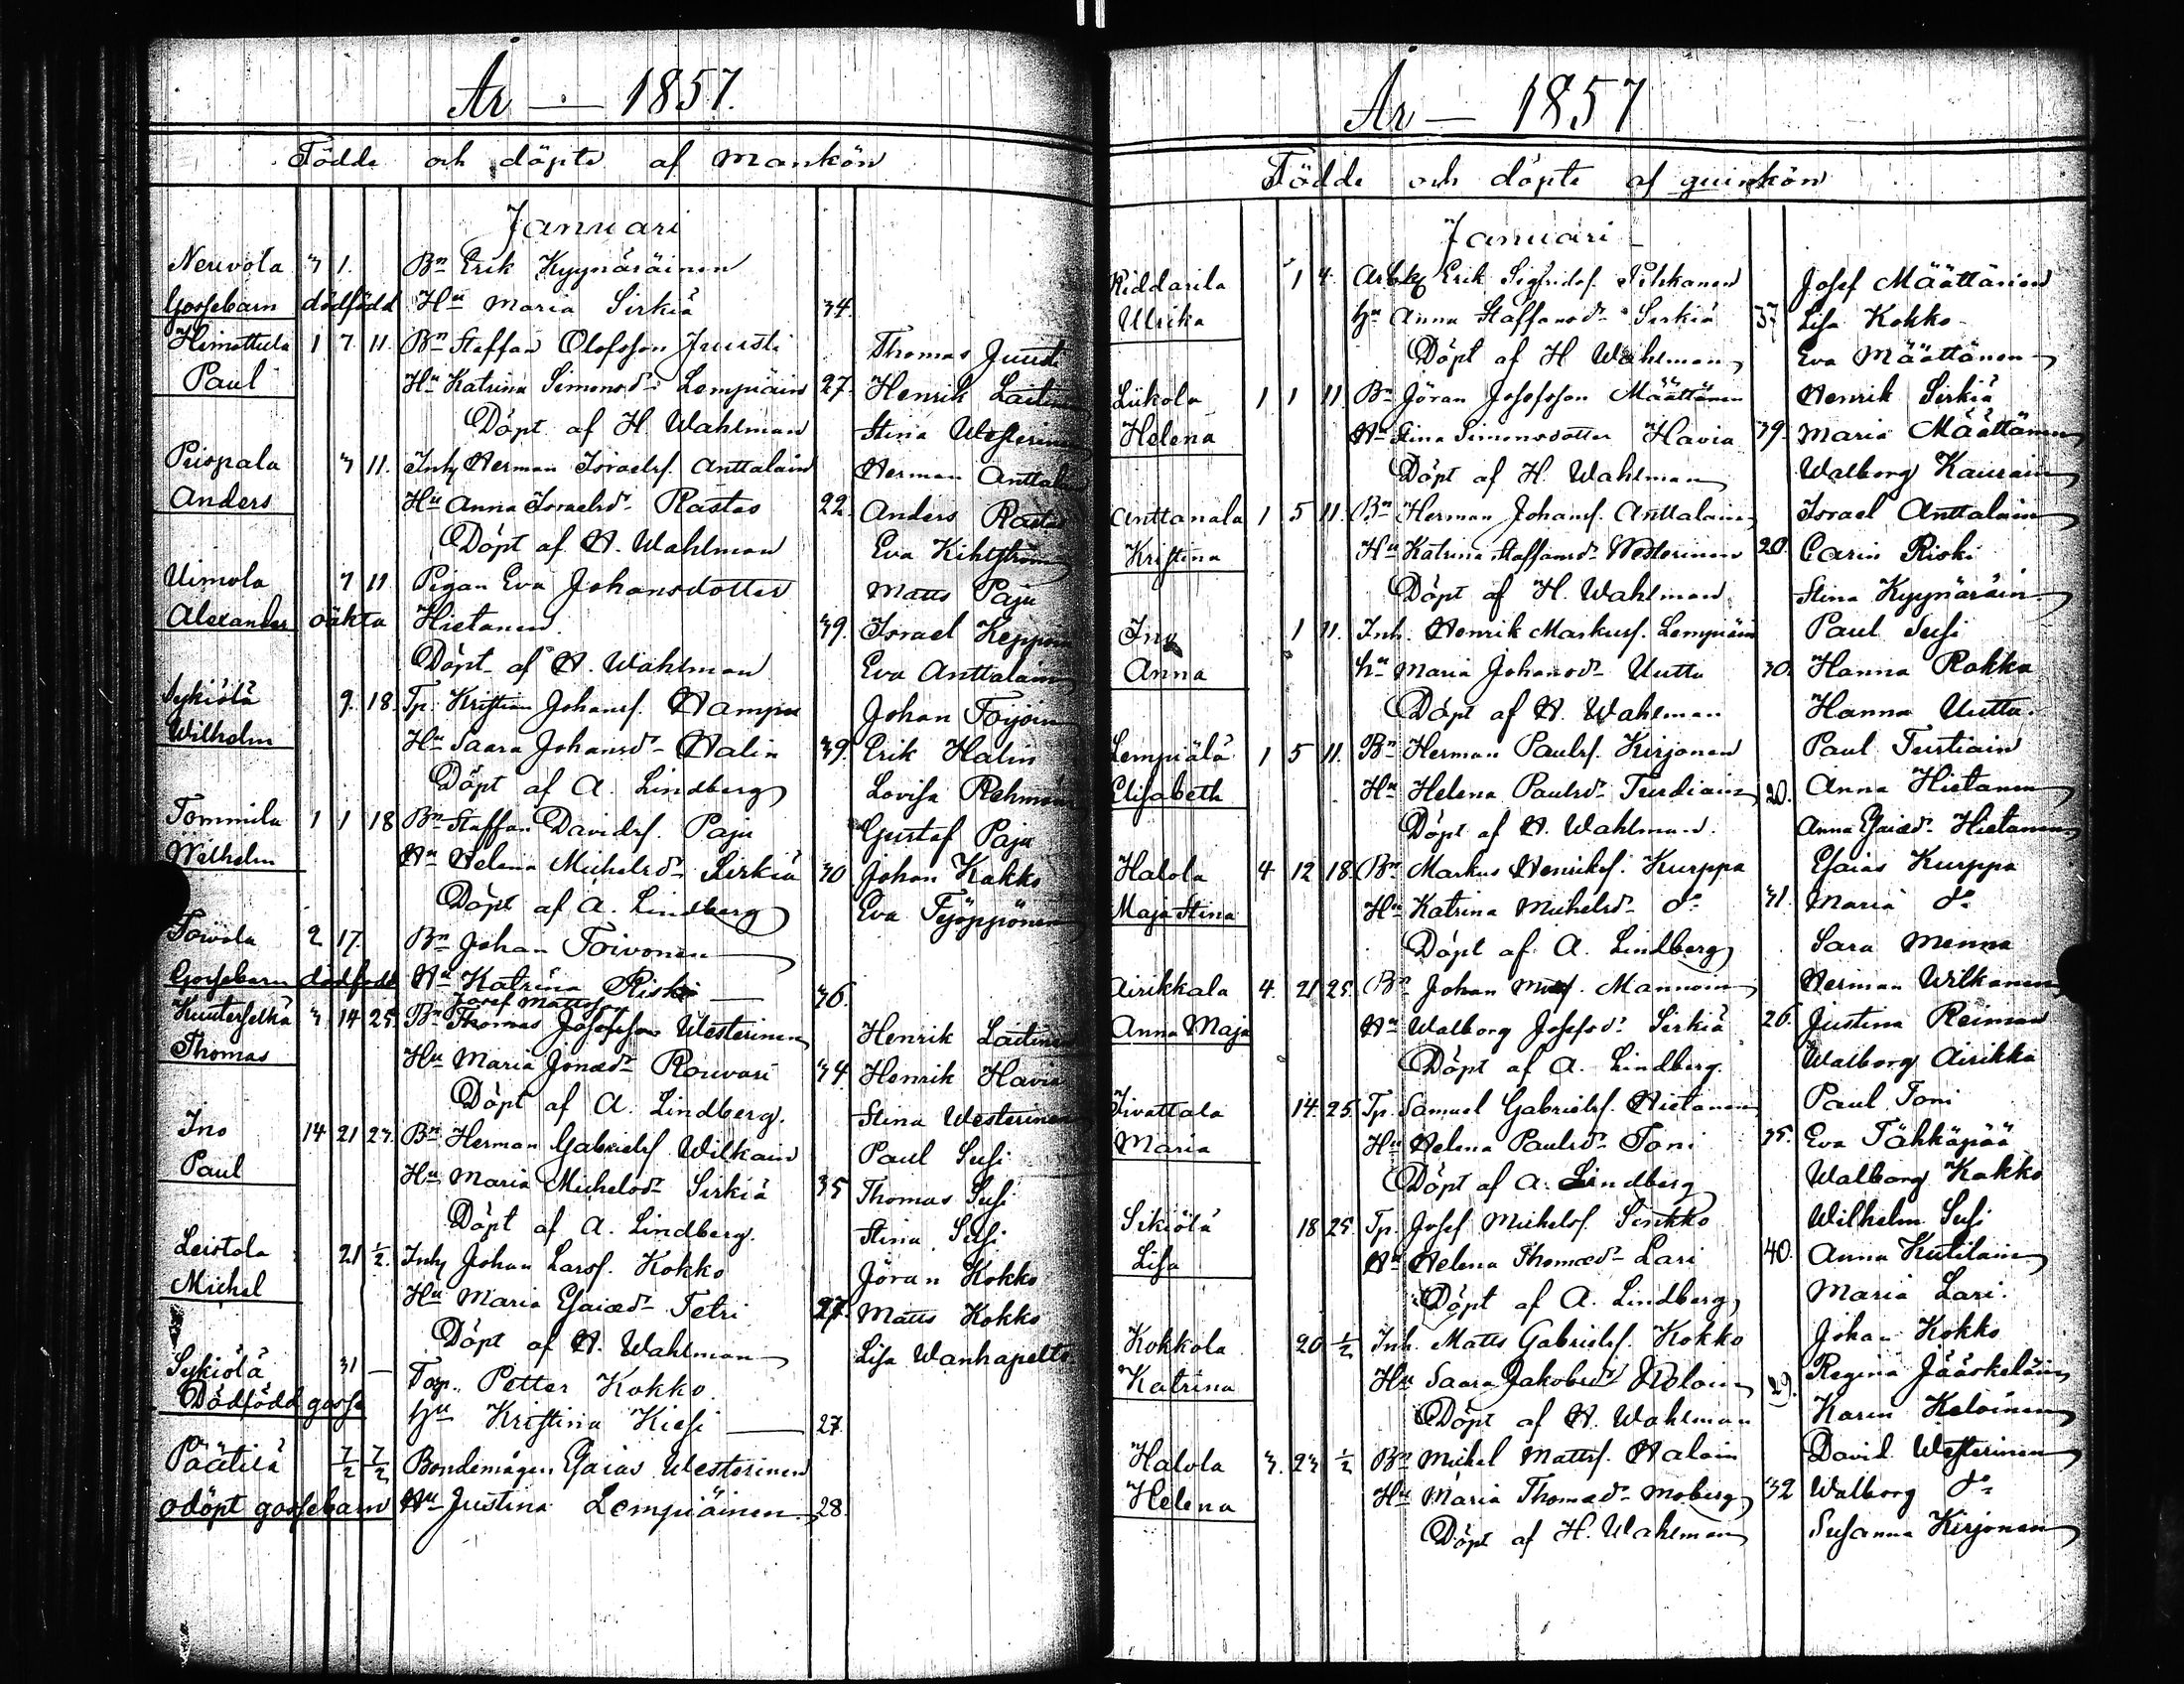 År — 1857.
Födde och döpte af Mankön
Januari
Nerivola 3 1. Bn Erik Kyynäräinen
Gossebarn dödfödd Hu Maria Sirkiä 34.
Himottula 1 7 11. Bn Staffan Olofsson Juusti Thomas Juusti
Paul Hu Katrina Simonsdr Lempiäin 27. Henrik Laitinen
Döpt af H. Wahlman Stina Westerinen
Peippala 3 11. Inh Herman Israelsf. Anttalain Herman Anttalain
Anders Hu Anna Israelsdr Rastas 22. Anders Rastas
Döpt af H. Wahlman Eva Kihlström
Uimola 7 11. Pigan Eva Johansdotter Matts Paju
Alexander oäkta Hietanen. 39. Israel Kepponen
Döpt af H. Wahlman Eva Anttalain
Sykiölä 9. 18. Tp. Kristian Johansf. Hampu Johan Toijoin
Wilhelm Hu Saara Johansdr Halin 39. Erik Halin
Döpt af A. Lindberg Lovisa Rehmän
Tommila 1 1 18 Bn Staffan Davidsf. Paju Gustaf Paju
Wilhelm Hu Helena Michelsdr Sirkiä 30 Johan Kokko
Döpt af A. Lindberg Eva Työppönen
Toivola 2 17. Bn Johan Toivonen
Gossebarn dödfödd Hu Katrina Riski 36.
Josef Mattsson
Kuuterselkä 3 14 25. Bn Thomas Josefsson Westerinen Henrik Laitinen
Thomas Hu Maria Jonædr Rouvari 34. Henrik Havia
Döpt af A. Lindberg. Stina Westerinen
Ino 14 21 27. Bn Herman Gabrielsf Wilkain Paul Susi
Paul Hu Maria Michelsdr Sirkiä 35 Thomas Susi
Döpt af A. Lindberg. Stina Susi
Leistola 21 1/2. Inh Johan Larsf. Kokko Jöran Kokko
Michel Hu Maria Esaiædr Tetri 27. Matts Kokko
Döpt af H. Wahlman Lisa Wanhapelto
Sykiölä 31 — Torp. Petter Kokko.
Dödfödd gosse Hu Kristina Kiesi 27.
Päätilä 7/2 7/2 Bondemågen Esaias Westerinen
odöpt gossebarn Hu Justina Lempiäinen 28.
År — 1857
Födde och döpte af quinkön
Januari
Riddarila 1 4. Arbk Erik Sigfridsf. Pihkanen Josef Määttänen
Ulrika Hu Anna Staffansdr Sirkiä 37 Lisa Kokko
Döpt af H Wahlman Eva Määttänen
Liikola 1 1 11. Bn Jöran Josefsson Määttänen Henrik Sirkiä
Helena Hu Stina Simonsdotter Havia 39. Maria Määttänen
Döpt af H. Wahlman Walborg Kaurain
Anttanala 1 5 11. Bn Herman Johansf. Anttalain Israel Anttalain
Kristina Hu Katrina Staffansdr Westerinen 20. Carin Riski
Döpt af H. Wahlman Stina Kyynäräin
Ino 1 11. Inh. Henrik Markusf. Lempiäin Paul Susi
Anna Hu Maria Johansdr Uutta 30. Hanna Rokka
Döpt af H. Wahlman Hanna Uutta
Lempiälä 1 5 11. Bn Herman Paulsf. Kirjonen Paul Turtiain
Elisabeth Hu Helena Paulsdr Turdiain 20. Anna Hietanen
Döpt af H. Wahlman. Anna Esaiædr Hietanen
Halola 4 12 18. Bn Markus Henriksf. Kurppa Esaias Kurppa
Maja Stina Hu Katrina Michelsdr do 31. Maria do
Döpt af A. Lindberg Sara Menna
Airikkala 4. 21 25. Bn Johan Mattsf. Mannoin Herman Wilkanen
Anna Maja Hu Walborg Josefsdr Sirkiä 26. Justina Reiman
Döpt af A. Lindberg. Walborg Airikka
Tivattala 14. 25. Tp. Samuel Gabrielsf. Hietanen Paul Toni
Maria Hu Helena Paulsdr Toni 35. Eva Tähkäpää
Döpt af A. Lindberg Walborg Kokko
Sikiölä 18 25. Tp. Josef Michelsf. Sinkko Wilhelm Susi
Lisa Hu Helena Thomædr Lari 40. Anna Kutilain
Döpt af A. Lindberg Maria Lari.
Kokkola 20 1/2 Inh. Matts Gabrielsf. Kokko Johan Kokko
Katrina Hu Saara Jakobsdr Kelain 29. Regina Jääskeläin
Döpt af H. Wahlman Karin Keloinen
Halola 3. 23 1/2 Bn Mickel Mattsf. Halain David Westerinen
Helena Hu Maria Thomædr Moberg 32 Walborg do
Döpt af H. Wahlman Susanna Kirjonen